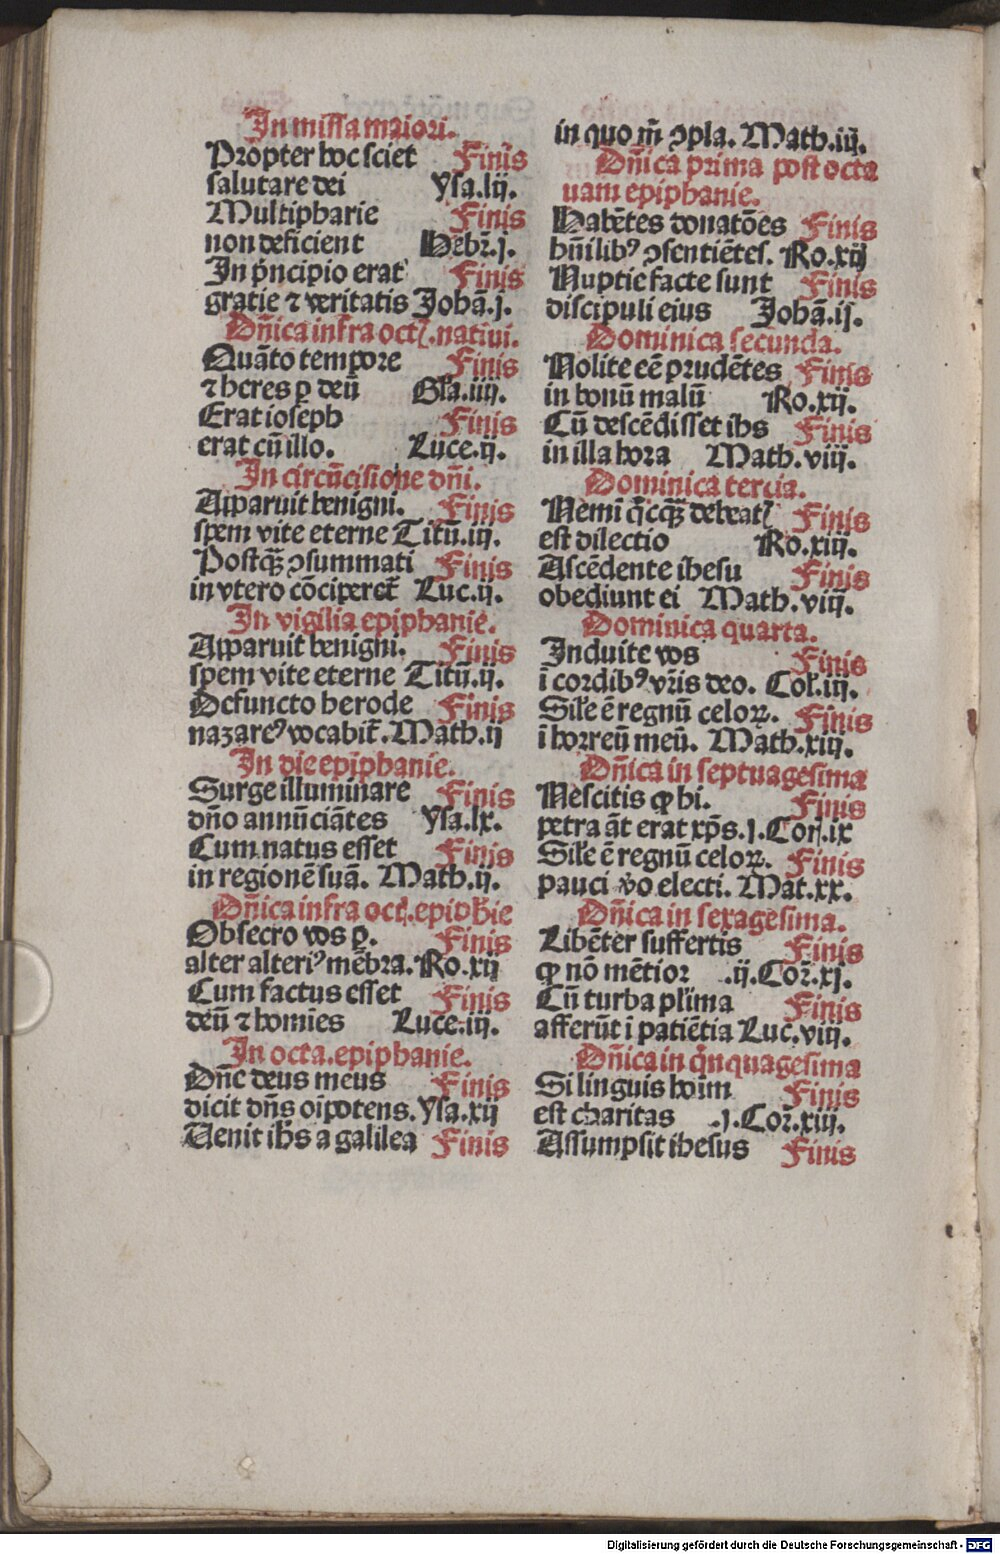 In missa maiori.
Propter hoc sciet Finis
salutare dei Ysa.lij.
Multipharie Finis
non deficient Hebr̄.j.
In p̄ncipio erat Finis
gratie ⁊ veritatis Johā.j.
Dn̄ica infra oct.natiui.
Quāto tempore Finis
⁊ heres ꝑ deū Gła.iiij.
Erat ioseph Finis
erat cū illo. Luce.ij.
In circūcisione dn̄i.
Apparuit benigni. Finis
spem vite eterne Titū.iij.
Postq̄ꝫ ꝯsummati Finis
in vtero cōciperet̄ Luc.ij.
In vigilia epiphanie.
Apparuit benigni. Finis
spem vite eterne Titū.ij.
Defuncto herode Finis
nazareꝰ vocabit̄. Math.ij
In die epiphanie.
Surge illuminare Finis
dn̄o annūciātes Ysa.lx.
Cum natus esset Finis
in regionē suā. Math.ij.
Dn̄ica infra oct.epiph̄ie
Obsecro vos ꝑ. Finis
alter alteriꝰ mēbra. Ro.xij
Cum factus esset Finis
deū ⁊ homīes Luce.iij.
In octa.epiphanie.
Dn̄e deus meus Finis
dicit dn̄s oīpotens. Ysa.xij
Uenit ih̄s a galilea Finis
in quo m̄ ꝯpla. Math.iij.
Dn̄ica prima post octa
uam epiphanie.
Habētes donatōes Finis
hūilibꝰ ꝯsentiētes. Ro.xij
Nuptie facte sunt Finis
discipuli eius Johā.ij.
Dominica secunda.
Nolite eē prudētes Finis
in bonū malū Ro.xij.
Cū descēdisset ihs Finis
in illa hora Math.viij.
Dominica tercia.
Nemi q̄cq̄ꝫ debeat Finis
est dilectio Ro.xiij.
Ascēdente ihesu Finis
obediunt ei Math.viij.
Dominica quarta.
Induite vos Finis
ī cordibꝰ vr̄is deo. Col.iij.
Sił'e ē regnū celoꝝ. Finis
ī horreū meū. Math.xiij.
Dn̄ica in septuagesima
Nescitis ꝙ hi. Finis
petra āt erat xp̄s.j.Cor.ix
Sił'e ē regnū celoꝝ. Finis
pauci v̓o electi. Mat.xx.
Dn̄ica in sexagesima.
Libēter suffertis Finis
ꝙ nō mētior .ij.Cor̄.xj.
Cū turba pl'ima Finis
afferūt ī patiētia Luc.viij.
Dn̄ica in q̄nquagesima
Si linguis hoīm Finis
est charitas .j.Cor̄.xiij.
Assumpsit ihesus Finis
Digitalisierung gefördert durch die Deutsche Forschungsgemeinschaft - DFG